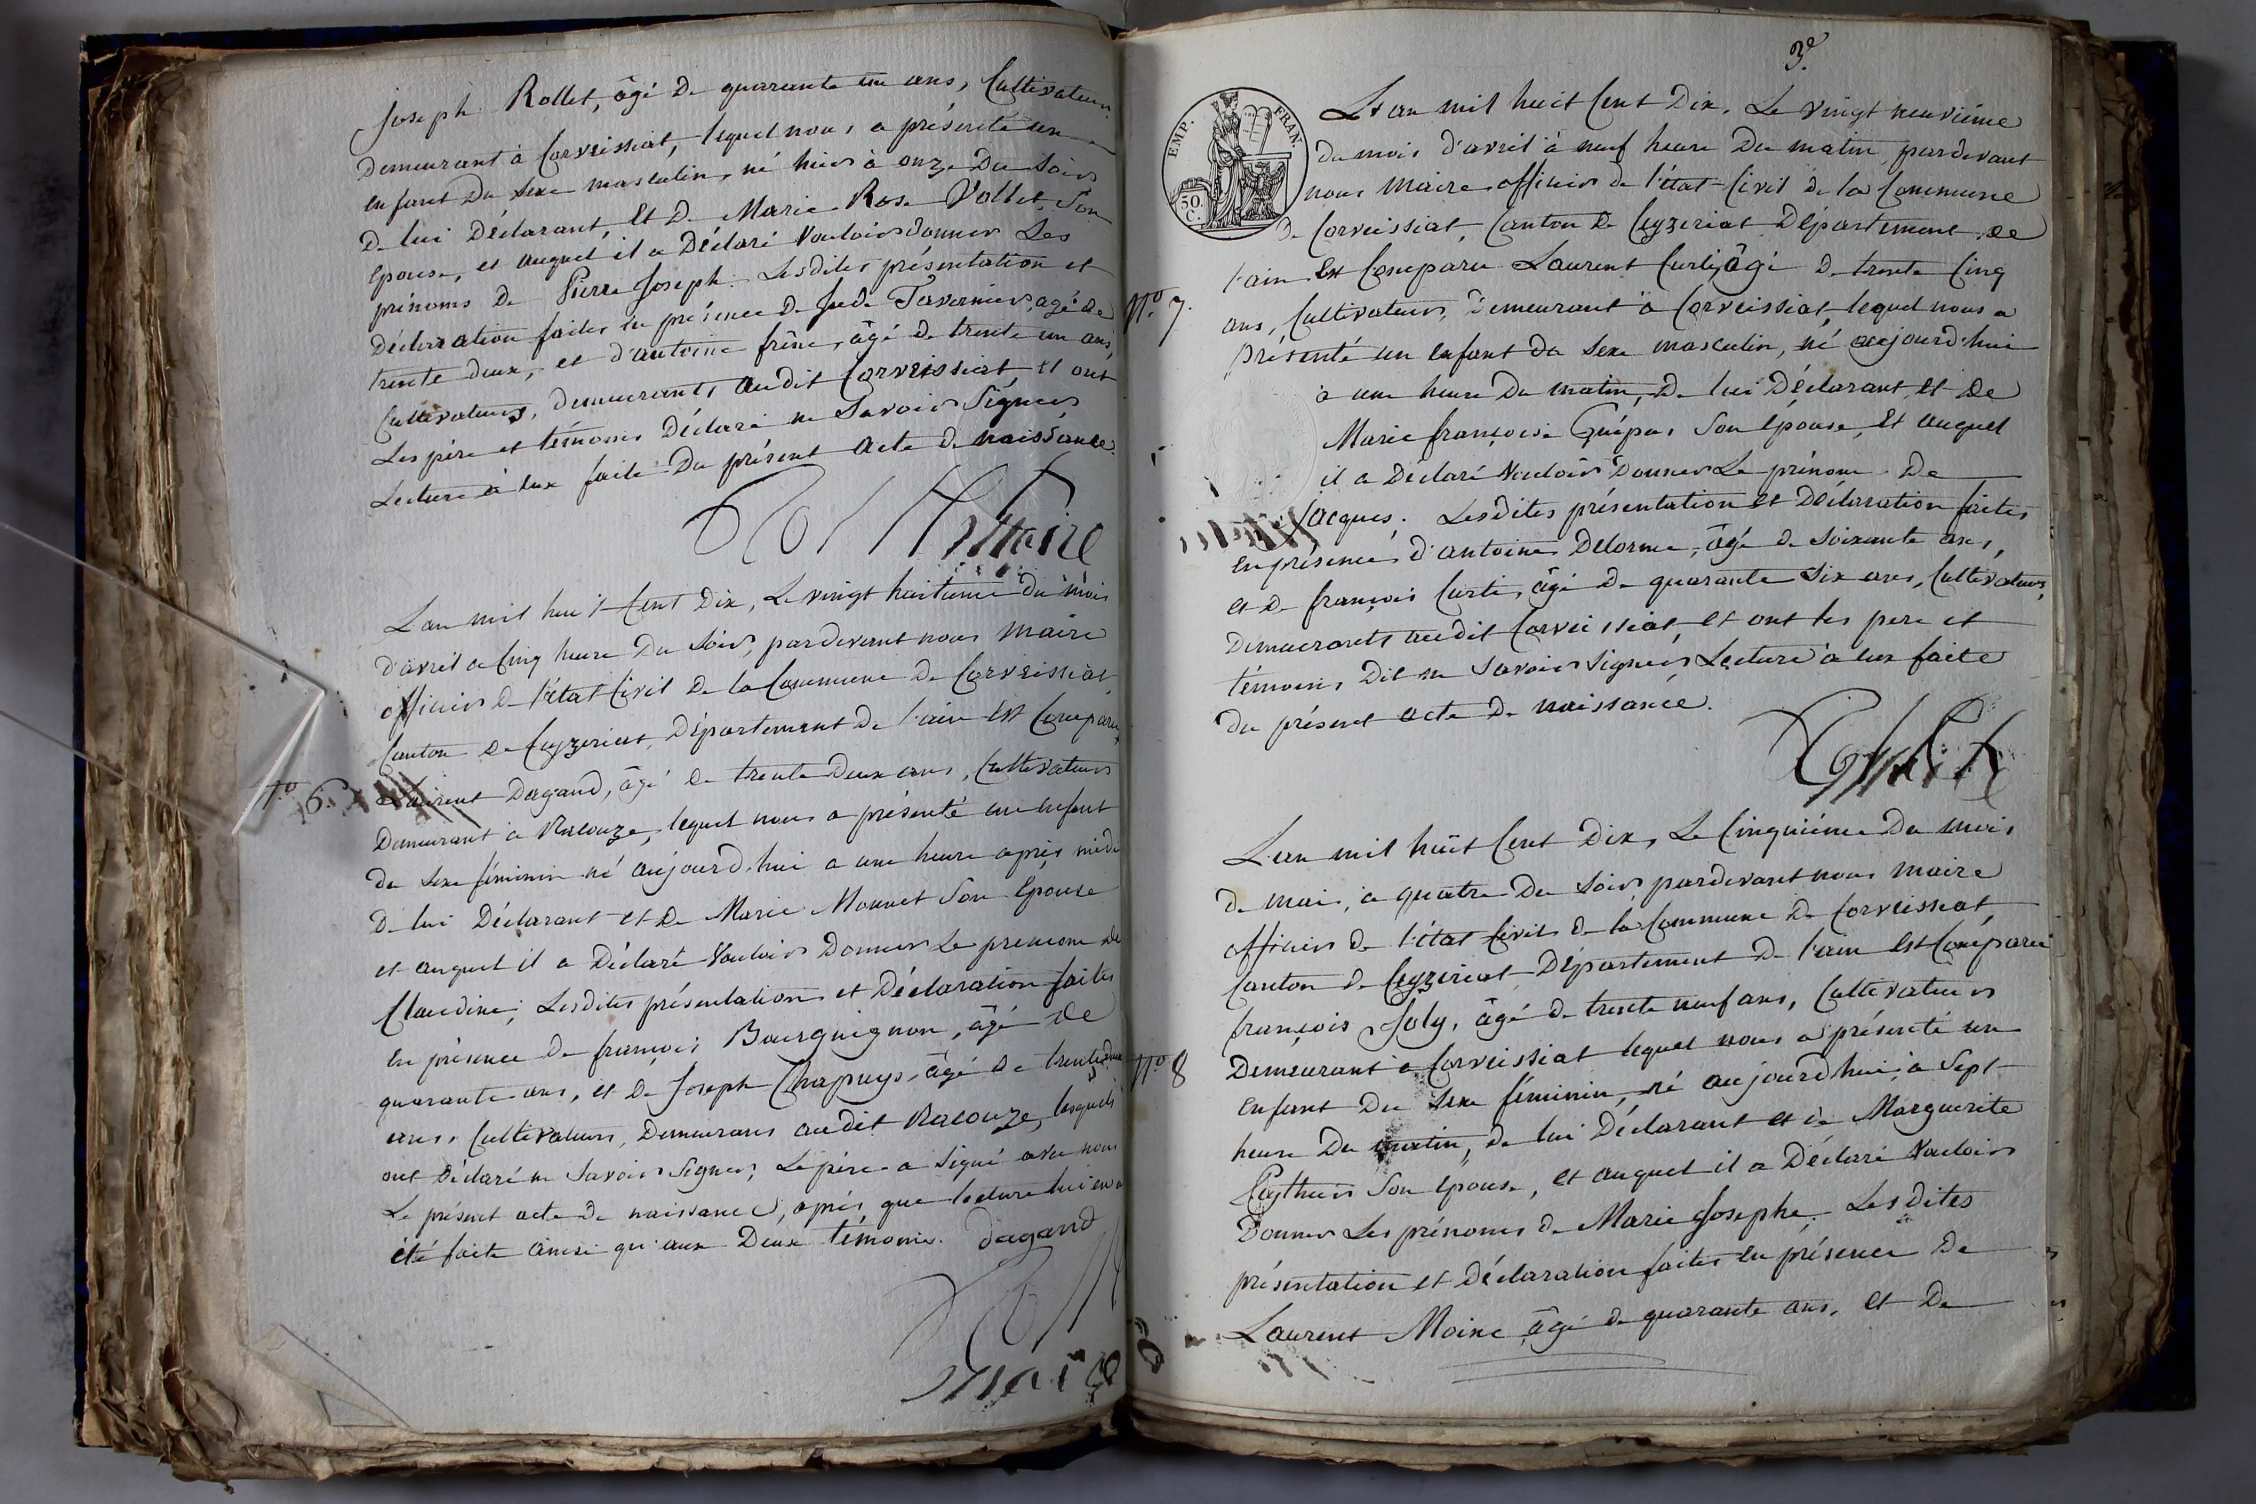 Joseph Rollet, âgé de quarante un ans, Cultivateur
demeurant à Corveissiat, lequel nous a présenté un
enfant du sexe masculin, né hier à onze du soir
de lui Déclarant, et de Marie Rose Vollet, Son
épouse, et auquel il a Déclaré Vouloir donner Les
prénoms de Pierre Joseph. Lesdites présentation et
Déclaration faites en présence de Jude Tavernier, agé de
trente deux, et d'antoine frêne, âgé de trente un ans,
Cultivateurs, demeurants audit Corveissiat, et ont
Les père et témoins Déclaré ne Savoir Signer
Lecture à eux faite du présent acte de naissance.
Maire
L'an mil huit Cent Dix, Le vingt huitieme du mois
d'avril a Cinq heure du Soir, pardevant nous Maire
officier de l'état Civil de la Commune de Corveissiat,
Canton de Ceyzeriat, Département de l'ain Est Comparu
N.o 6.
Laurent Dagand, âgé de trente deux ans, Cultivateur
Demeurant à Racouze, lequel nous a présenté un enfant
du sexe féminin né aujourd'hui a une heure après midi
de lui Déclarant et de Marie Monnet Son Epouse
et auquel il a Déclaré Vouloir Donner Le prenom de
Claudine; Lesdites présentation et Déclaration faites
en présence de françois Bourguignon, âgé de
quarante ans, et de Joseph Chapuys, âgé de trente deux
ans, Cultivateurs, Demeurans audit Racouze, lesquels
ont Déclaré ne Savoir Signer; Le père a Signé avec nous
Le présent acte de naissance, après que lecture lui en a
été faite ainsi qu'aux Deux témoins. Dagand
maire
3.e
EMP. FRAN.
50. C.
L'an mil huit Cent Dix, Le vingt neuvième
du mois d'avril à neuf heure du matin, pardevant
nous Maire officier de l'état-Civil de la Commune
de Corveissiat, Canton de Ceyzeriat Département de
l'ain Est Comparu Laurent Curty âgé de trente Cinq
N.o 7.
ans, Cultivateur, Demeurant à Corveissiat, lequel nous a
présenté un enfant du sexe masculin, né aujourd'hui
à une heure du matin, de lui Déclarant, et de
Marie françoise Guépas Son épouse, Et auquel
il a Déclaré Vouloir Donner Le prénom De
Jacques. Lesdites présentation et Déclaration faites
en présence d'antoine Delorme, âgé de Soixante ans,
et de françois Curti, âgé de quarante Six ans, Cultivateurs,
Demeurants audit Corveissiat, et ont les pere et
témoins Dit ne Savoir Signer, Lecture à eux faite
du présent acte de naissance.
L'an mil huit Cent Dix, Le Cinquième du mois
de mai, a quatre du Soir pardevant nous maire
officier de l'état Civil de la Commune de Corveissiat,
Canton de Ceyzeriat Département de l'ain Est Comparu
françois Joly, âgé de trente neuf ans, Cultivateur
Demeurant à Corveissiat lequel nous a présenté un
N.o 8
enfant du sexe féminin, né aujourd'hui, à Sept
heure du matin, de lui Déclarant et de Marguerite
Son épouse, et auquel il a Déclaré Vouloir
Donner Les prénoms de Marie Josephe. Lesdites
présentation et Déclaration faites en présence de
Laurent Moine âgé de quarante ans, et De